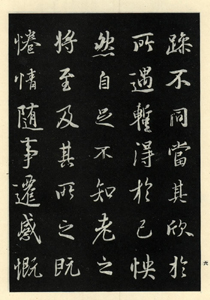 踈不同當其欣於
所遇暫得於己怏
然自足不知老之
將至及其所之既
惓情隨事遷感慨
六